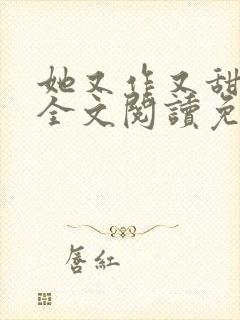 她又作又甜
全文閱讀免
唇紅